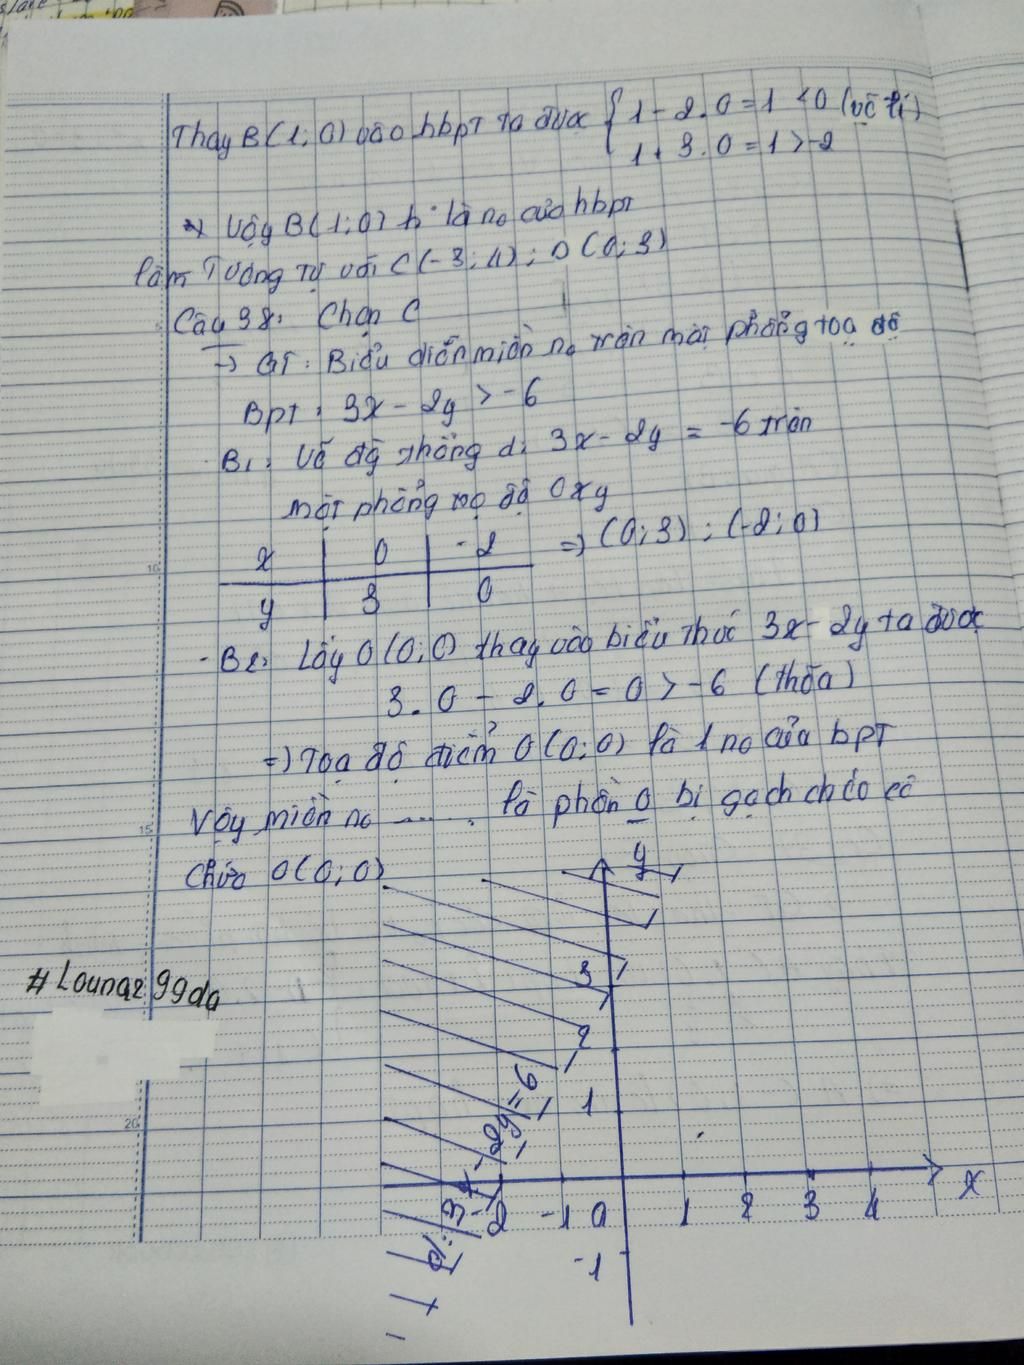 Thay B(1;0) vào hbpt ta được { 1 - 2.0 = 1 < 0 (vô lí)
1 + 3.0 = 1 > -2
=> Vậy B(1;0) k° là no của hbpt
làm Tương tự với C(-3;4); D(0;3)
Câu 38: Chọn C
-> GT: Biểu diễn miền no trên mặt phẳng toạ độ
Bpt: 3x - 2y > -6
- B1: Vẽ đg thẳng d: 3x - 2y = -6 trên
mặt phẳng tọ độ Oxy
x 0 -2 => (0;3); (-2;0)
y 3 0
- B2: Lấy O(0;0) thay vào biểu thức 3x - 2y ta được
3.0 - 2.0 = 0 > -6 (thõa)
=> Toạ độ điểm O(0;0) là 1 no của bpt
Vậy miền no ....... là phần o bị gạch chéo có
Chứa O(0;0)
y
#Lounaz99da
3
2
1
d: 3x - 2y = 6
-2 -1 0 1 2 3 4 x
-1